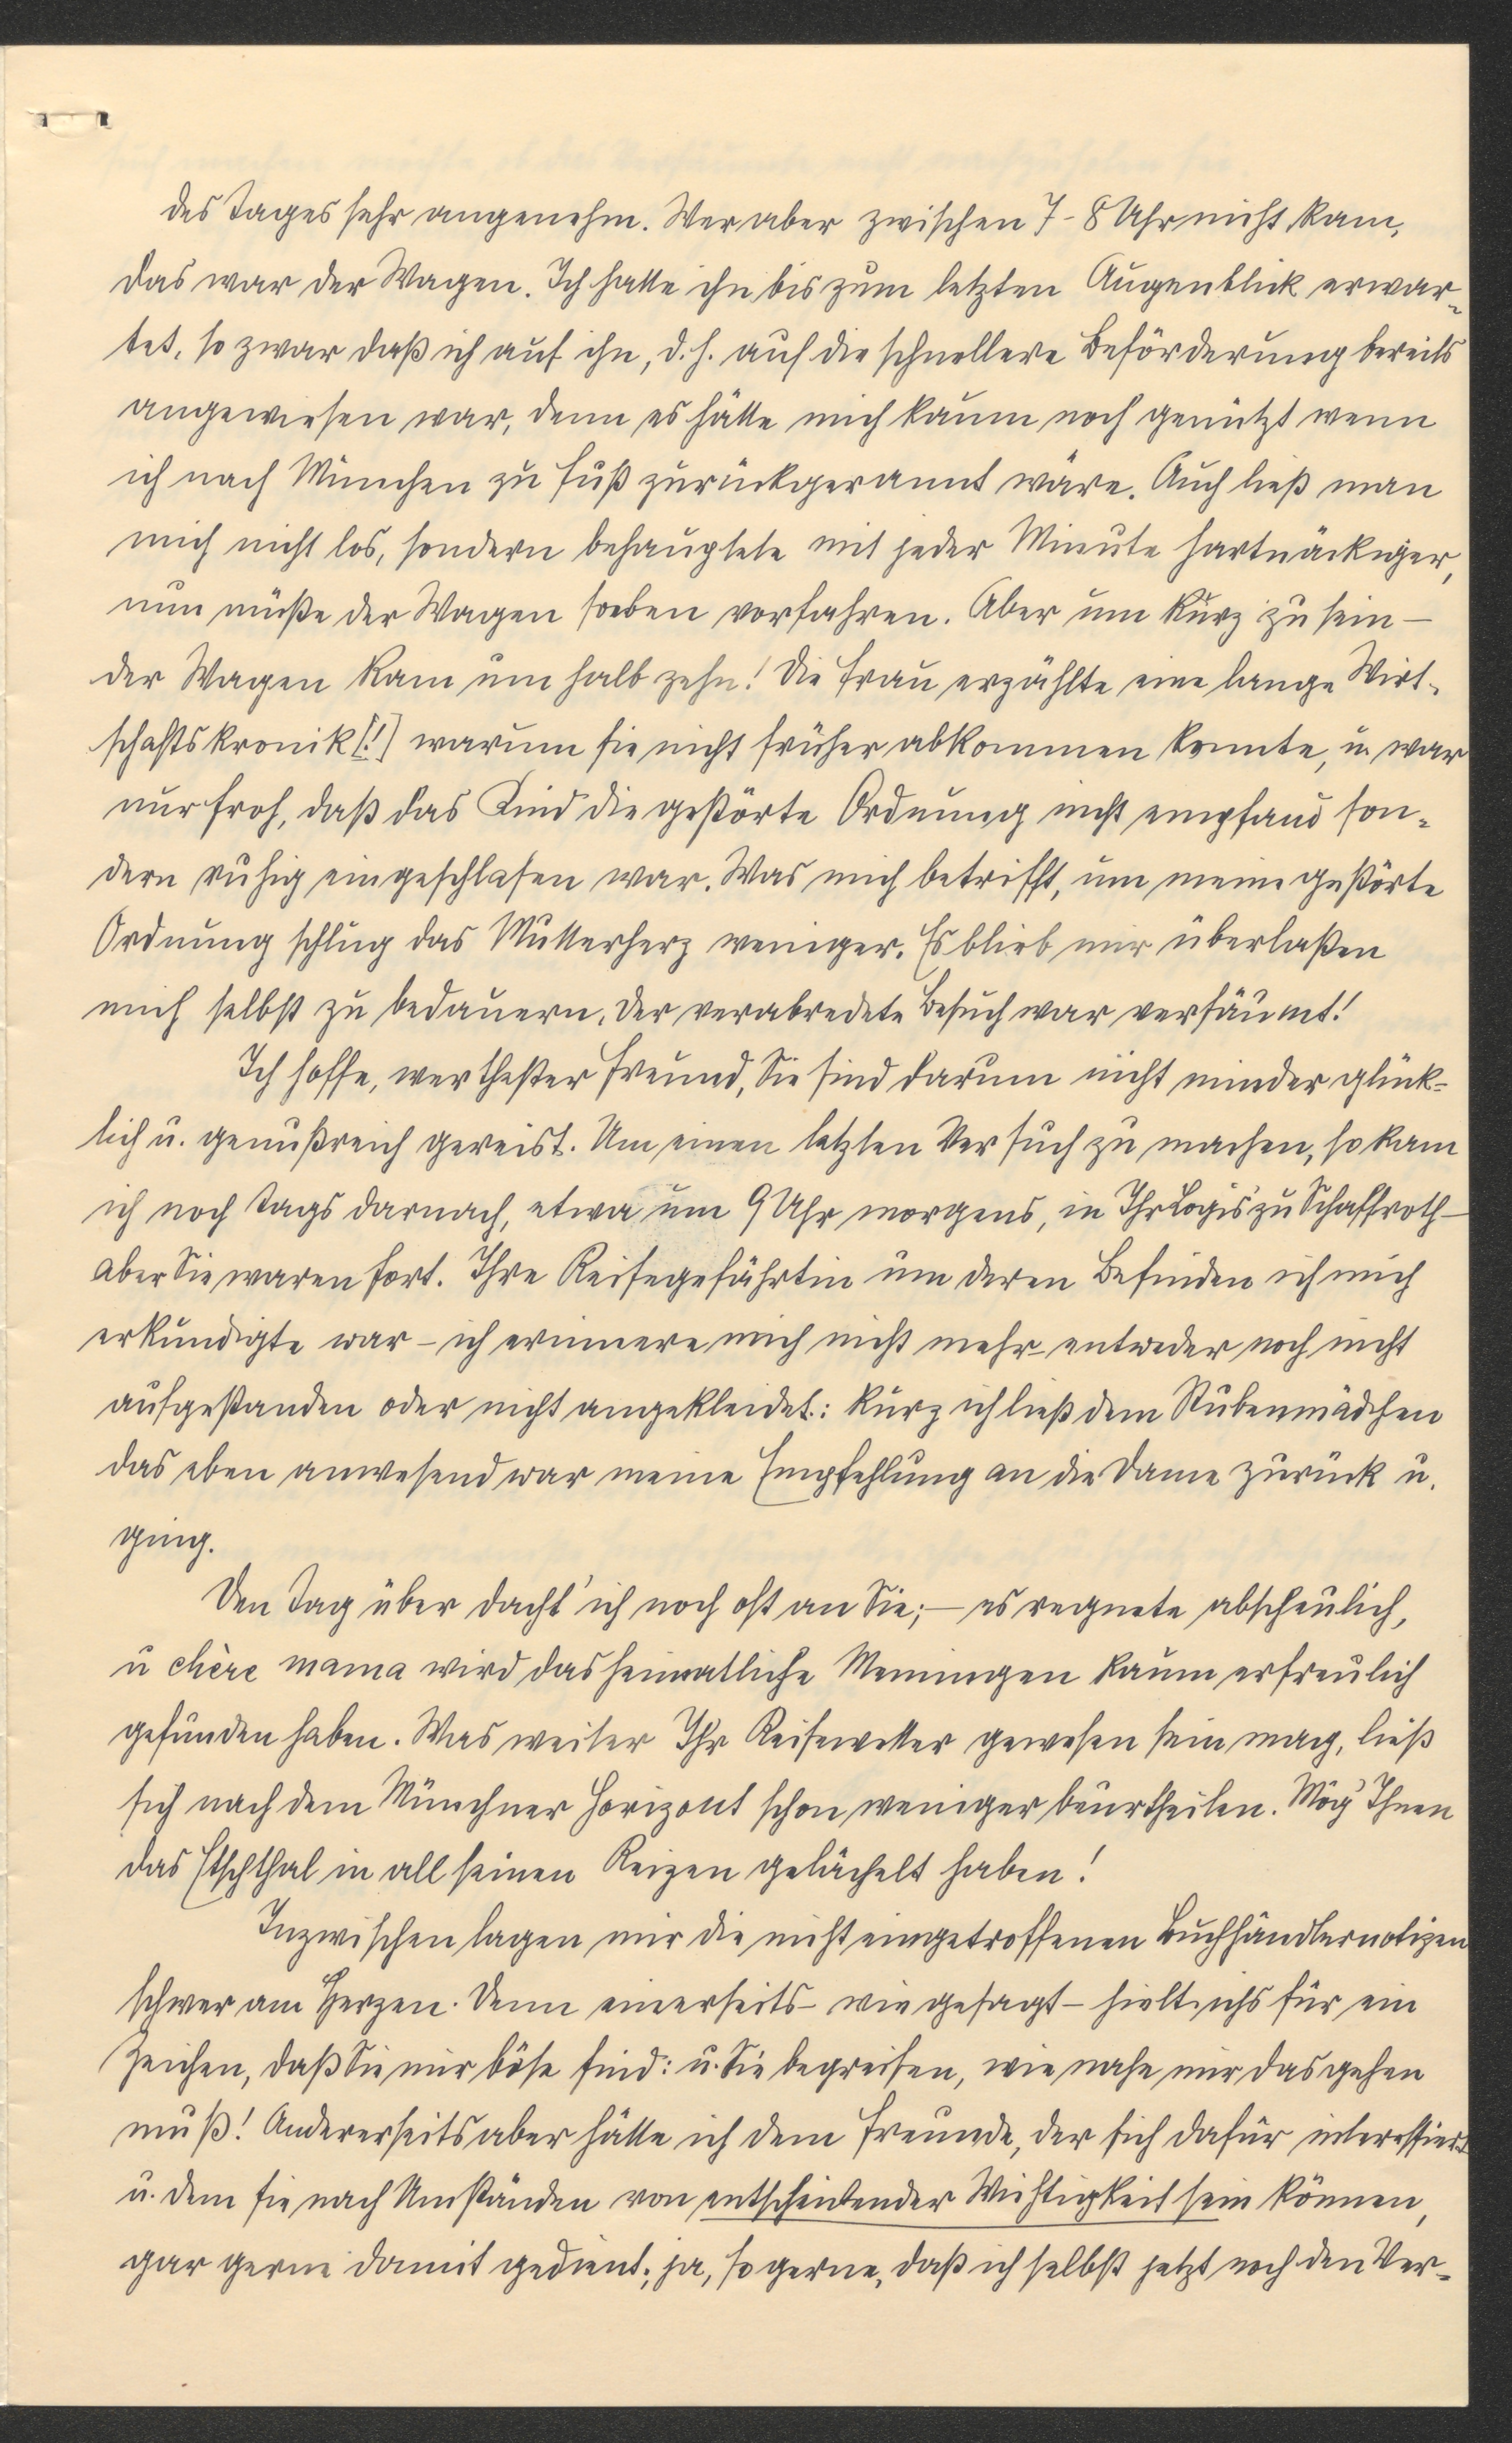 des Tages sehr angenehm. Wer aber zwischen 7-8 Uhr nicht kam,
das war der Wagen. Ich hatte ihn bis zum letzten Augenblick erwar-
tet, so zwar daß ich auf ihn, d. h. auf die schnellere Beförderung bereits
angewiesen war, denn es hätte mich kaum noch genützt wenn
ich nach München zu Fuß zurückgerannt wäre. Auch ließ man
mich nicht los, sondern behauptete mit jeder Minute hartnäckiger,
nun müße der Wagen soeben vorfahren. Aber um kurz zu sein –
der Wagen kam um halb zehn! Die Frau erzählte eine lange Wirt-
schaftskronik [!] warum sie nicht früher abkommen konnte, u. war
nur froh, daß das Kind die gestörte Ordnung nicht empfand son-
dern ruhig eingeschlafen war. Was mich betrifft, um meine gestörte
Ordnung schlug das Mutterherz weniger. Es blieb mir überlaßen
mich selbst zu bedauern. Der verabredete Besuch war versäumt!
Ich hoffe, werthester Freund, Sie sind darum nicht minder glück-
lich u. genußreich gereist. Um einen letzten Versuch zu machen, so kam
ich noch Tags darnach, etwa um 9 Uhr morgens, in Ihr Logis zu Schaffroth –
aber Sie waren fort. Ihre Reisegefährtin um deren Befinden ich mich
erkundigte war – ich erinnere mich nicht mehr – entweder noch nicht
aufgestanden oder nicht angekleidet: kurz ich ließ dem Stubenmädchen
das eben anwesend war meine Empfehlung an die Dame zurück u.
ging.
Den Tag über dacht' ich noch oft an Sie; – es regnete abscheulich,
u chère mama wird das heimatliche Memingen kaum erfreulich
gefunden haben. Was weiter Ihr Reisewetter gewesen sein mag, ließ
sich nach dem Münchner Horizont schon weniger beurtheilen. Mög' Ihnen
das Etschthal in all seinen Reizen gelächelt haben!
Inzwischen lagen mir die nicht eingetroffenen Buchhändlernotizen
schwer am Herzen. Denn einerseits – wie gesagt – hielt ichs für ein
Zeichen, daß Sie mir böse sind: u. Sie begreifen, wie nahe mir das gehen
muß! Andererseits aber hätte ich dem Freunde, der sich dafür interessiert
u. dem sie nach Umständen von entscheidender Wichtigkeit sein können,
gar gerne damit gedient; ja, so gerne, daß ich selbst jetzt noch den Ver-